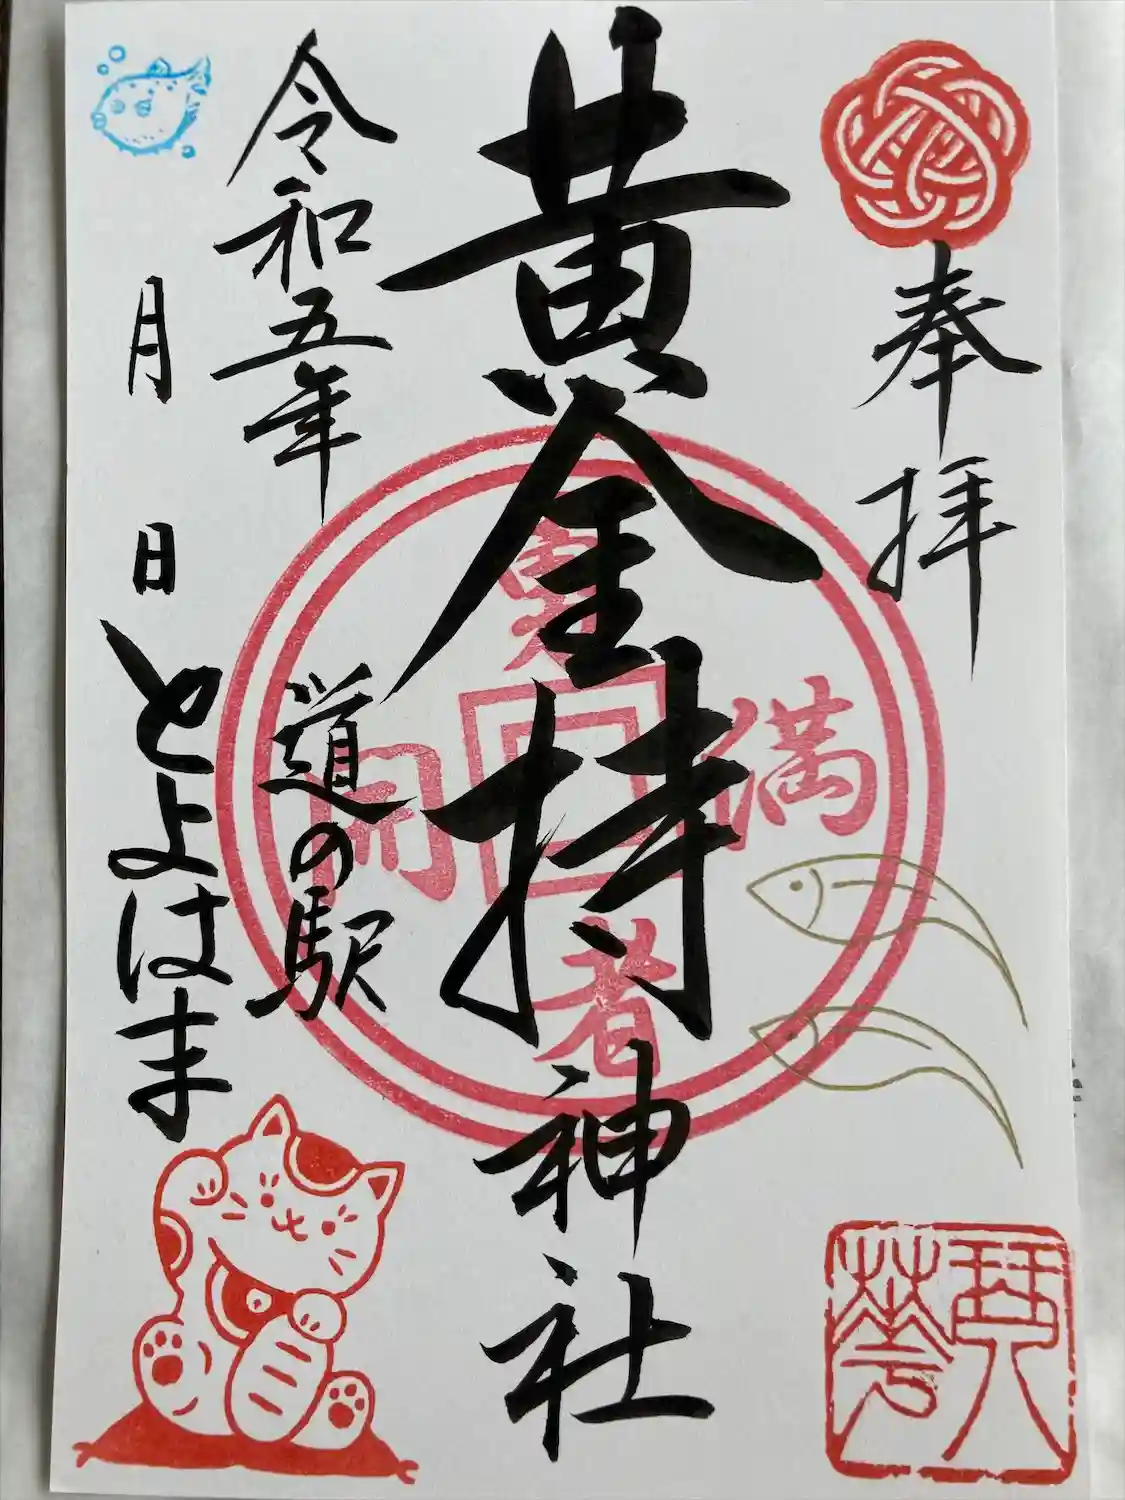 奉拝
黄金持神社
満
者
開
令和五年
月 日
道の駅
とよはま